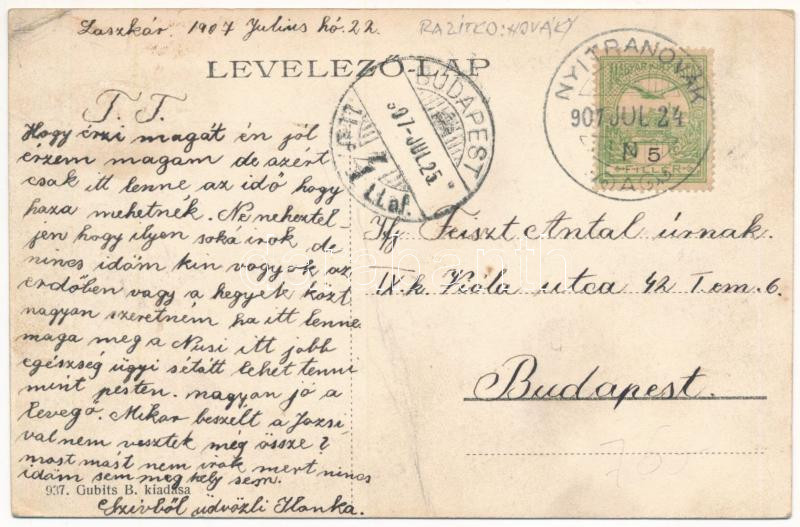 Laszkár. 1907 Julius hó. 22.
RAZÍTKO: NOVÁKY
LEVELEZŐ-LAP
NYITRANOVÁK
907 JUL 24
N 5
FILLÉR
BUDAPEST
907-JUL 25
T. T.
Hogy érzi magát én jól
érzem magam de azért
csak itt lenne az idő hogy
haza mehetnék. Ne neheztel
jen hogy ilyen soká irok de
nincs időm kin vagyok az
erdőben vagy a hegyek közt
nagyon szeretném ha itt lenne
maga meg a Nusi itt jobb
egészség ügyi sétátt lehet tenni
mint pesten. nagyon jó a
levegő. Mikor beszélt a Jozsi
val nem vesztek még össze?
most mást nem irok mert nincs
időm sem meg hely sem.
Szivből üdvözli Ilonka.
937. Gubits B. kiadása
Ifj Feiszt Antal úrnak.
IX.k. Viola utca 42 I em. 6.
Budapest.